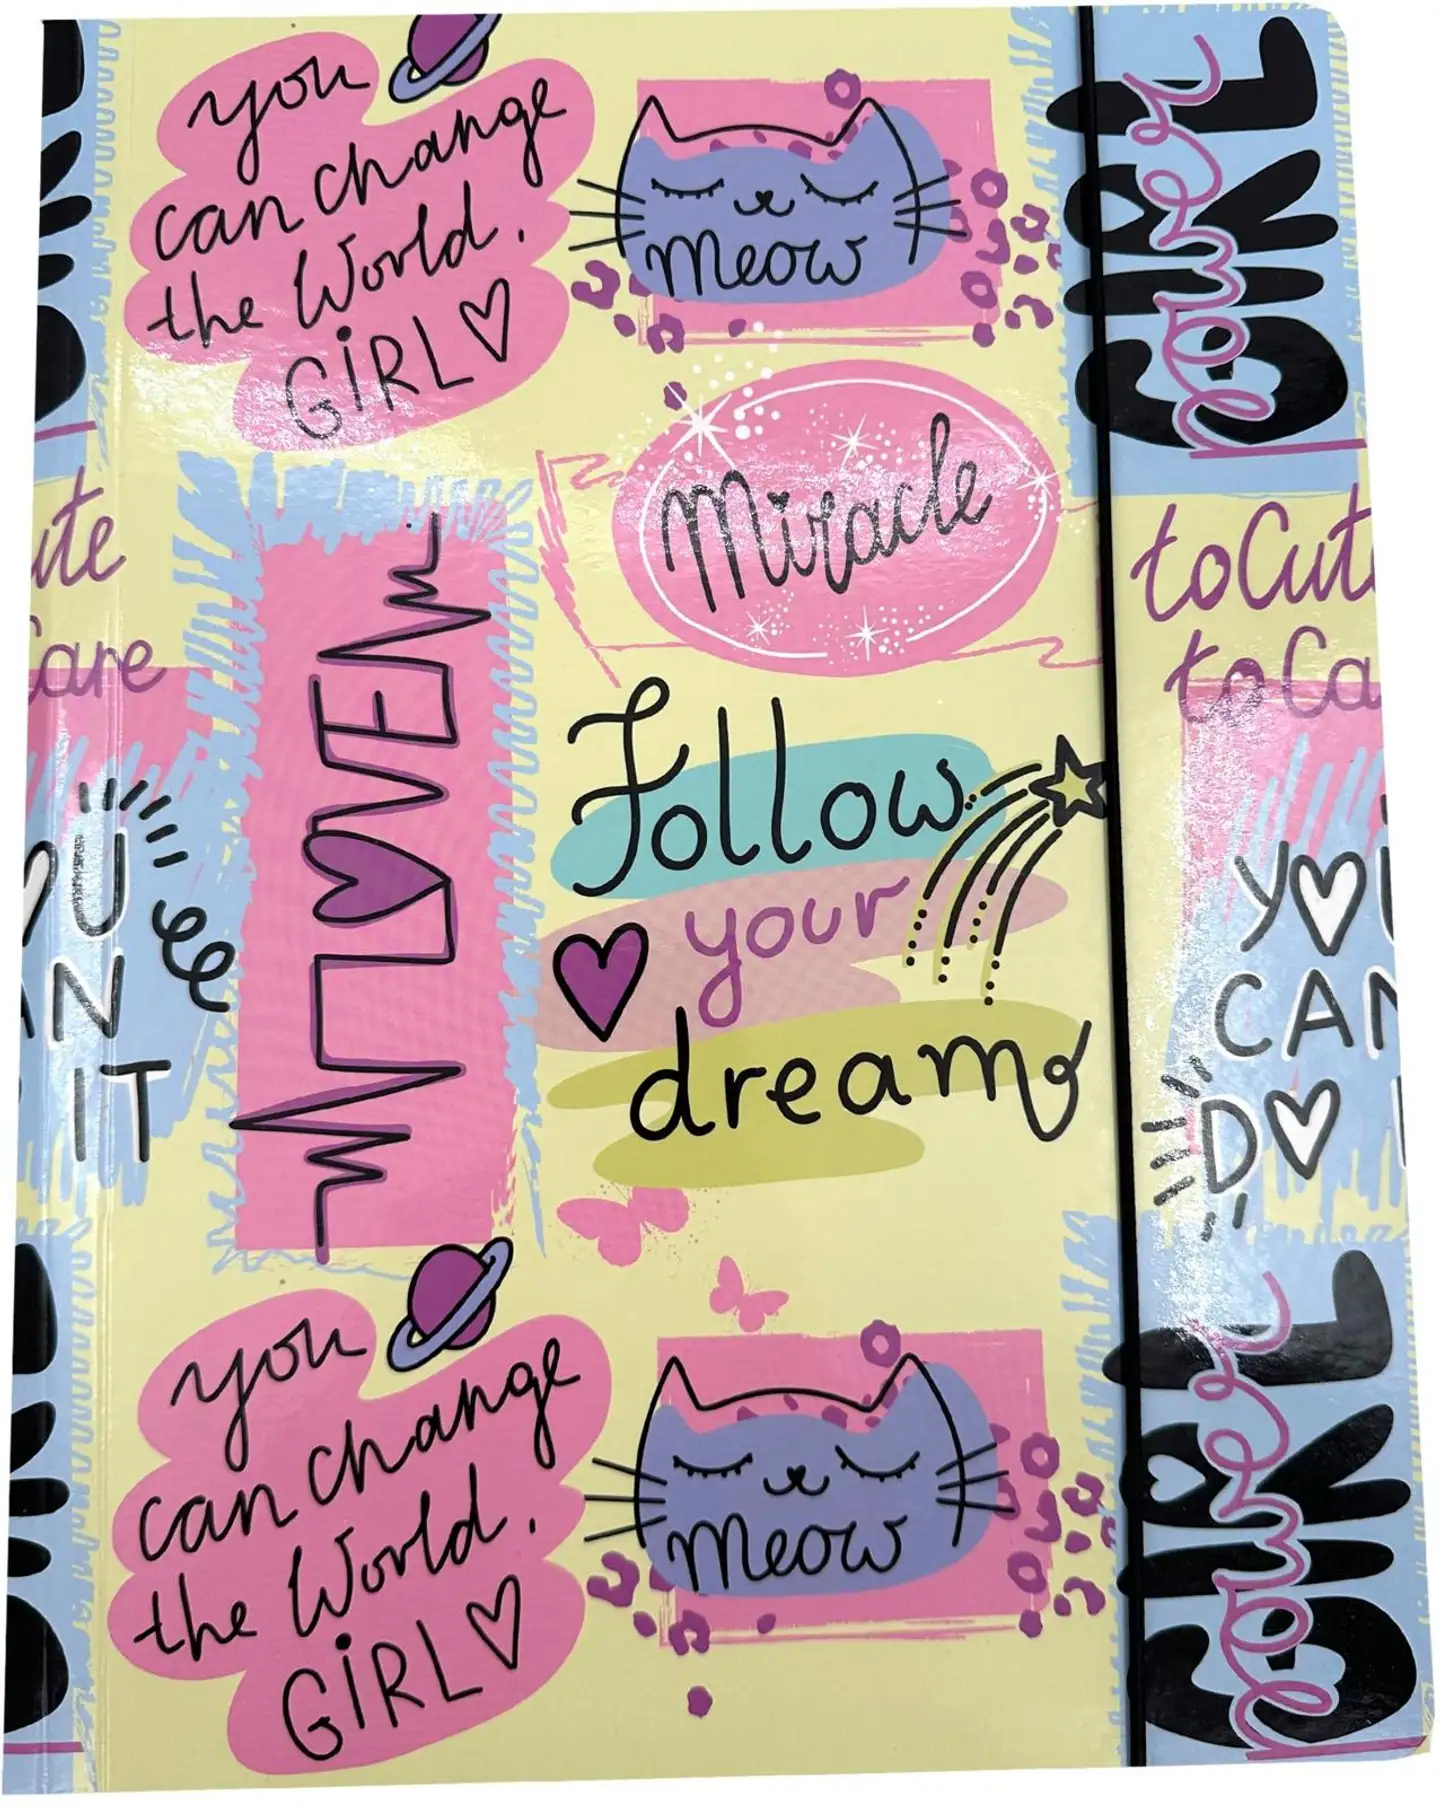 you
can change
the World.
GiRL
meow
GIRL
Miracle
ute
Care
toCut
toCa
LOVE
Follow
your
dream
OU
AN
IT
YOU
CAN
DO
you
can change
the World.
GiRL
meow
GIRL